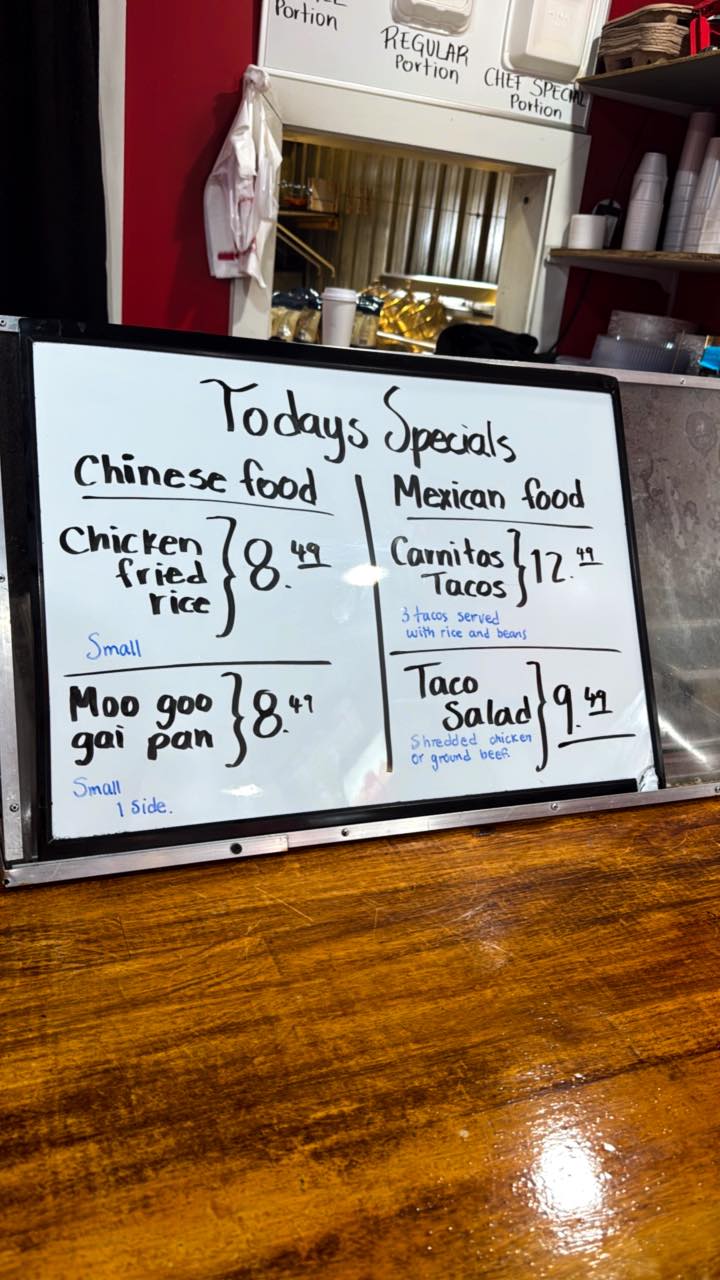 Portion
REGULAR
Portion
CHEF SPECIAL
Portion
Todays Specials
Chinese food
Chicken
fried
rice
8.49
Small
Moo goo
gai pan
8.49
Small
1 side.
Mexican food
Carnitas
Tacos
12.49
3 tacos served
with rice and beans
Taco
Salad
9.49
Shredded chicken
or ground beef.